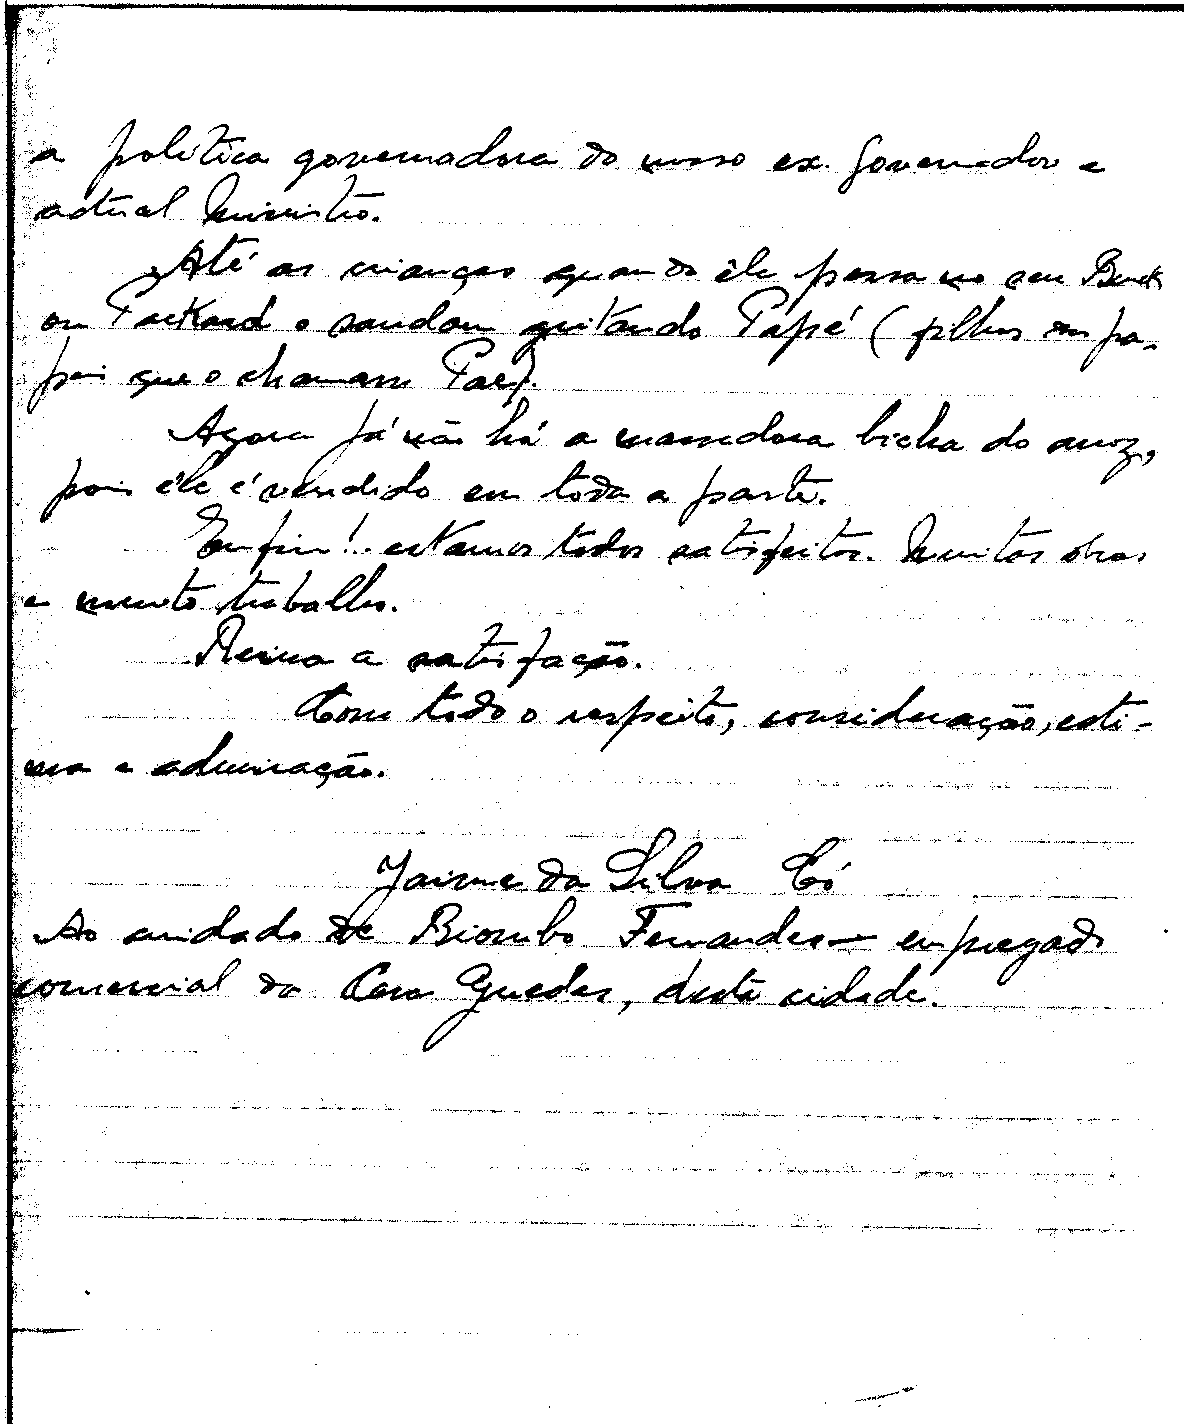 a politica governadora do nosso ex. Governador e
actual Ministro.
Até as crianças quando êle passa no seu Buick
ou Packard o saudam gritando Papé (filhos ou pa-
pai que o chamam Pae).
Agora já não há a massadora bicha do arroz,
pois êle é vendido em toda a parte.
Emfim!.. estamos todos satisfeitos. Muitas obras
e muito trabalho.
Reina a satisfação.
Com todo o respeito, consideração, esti-
ma e admiração.
Jaime da Silva Có
Ao cuidado de Biombo Fernandes — empregado
comercial da Casa Guedes, desta cidade.